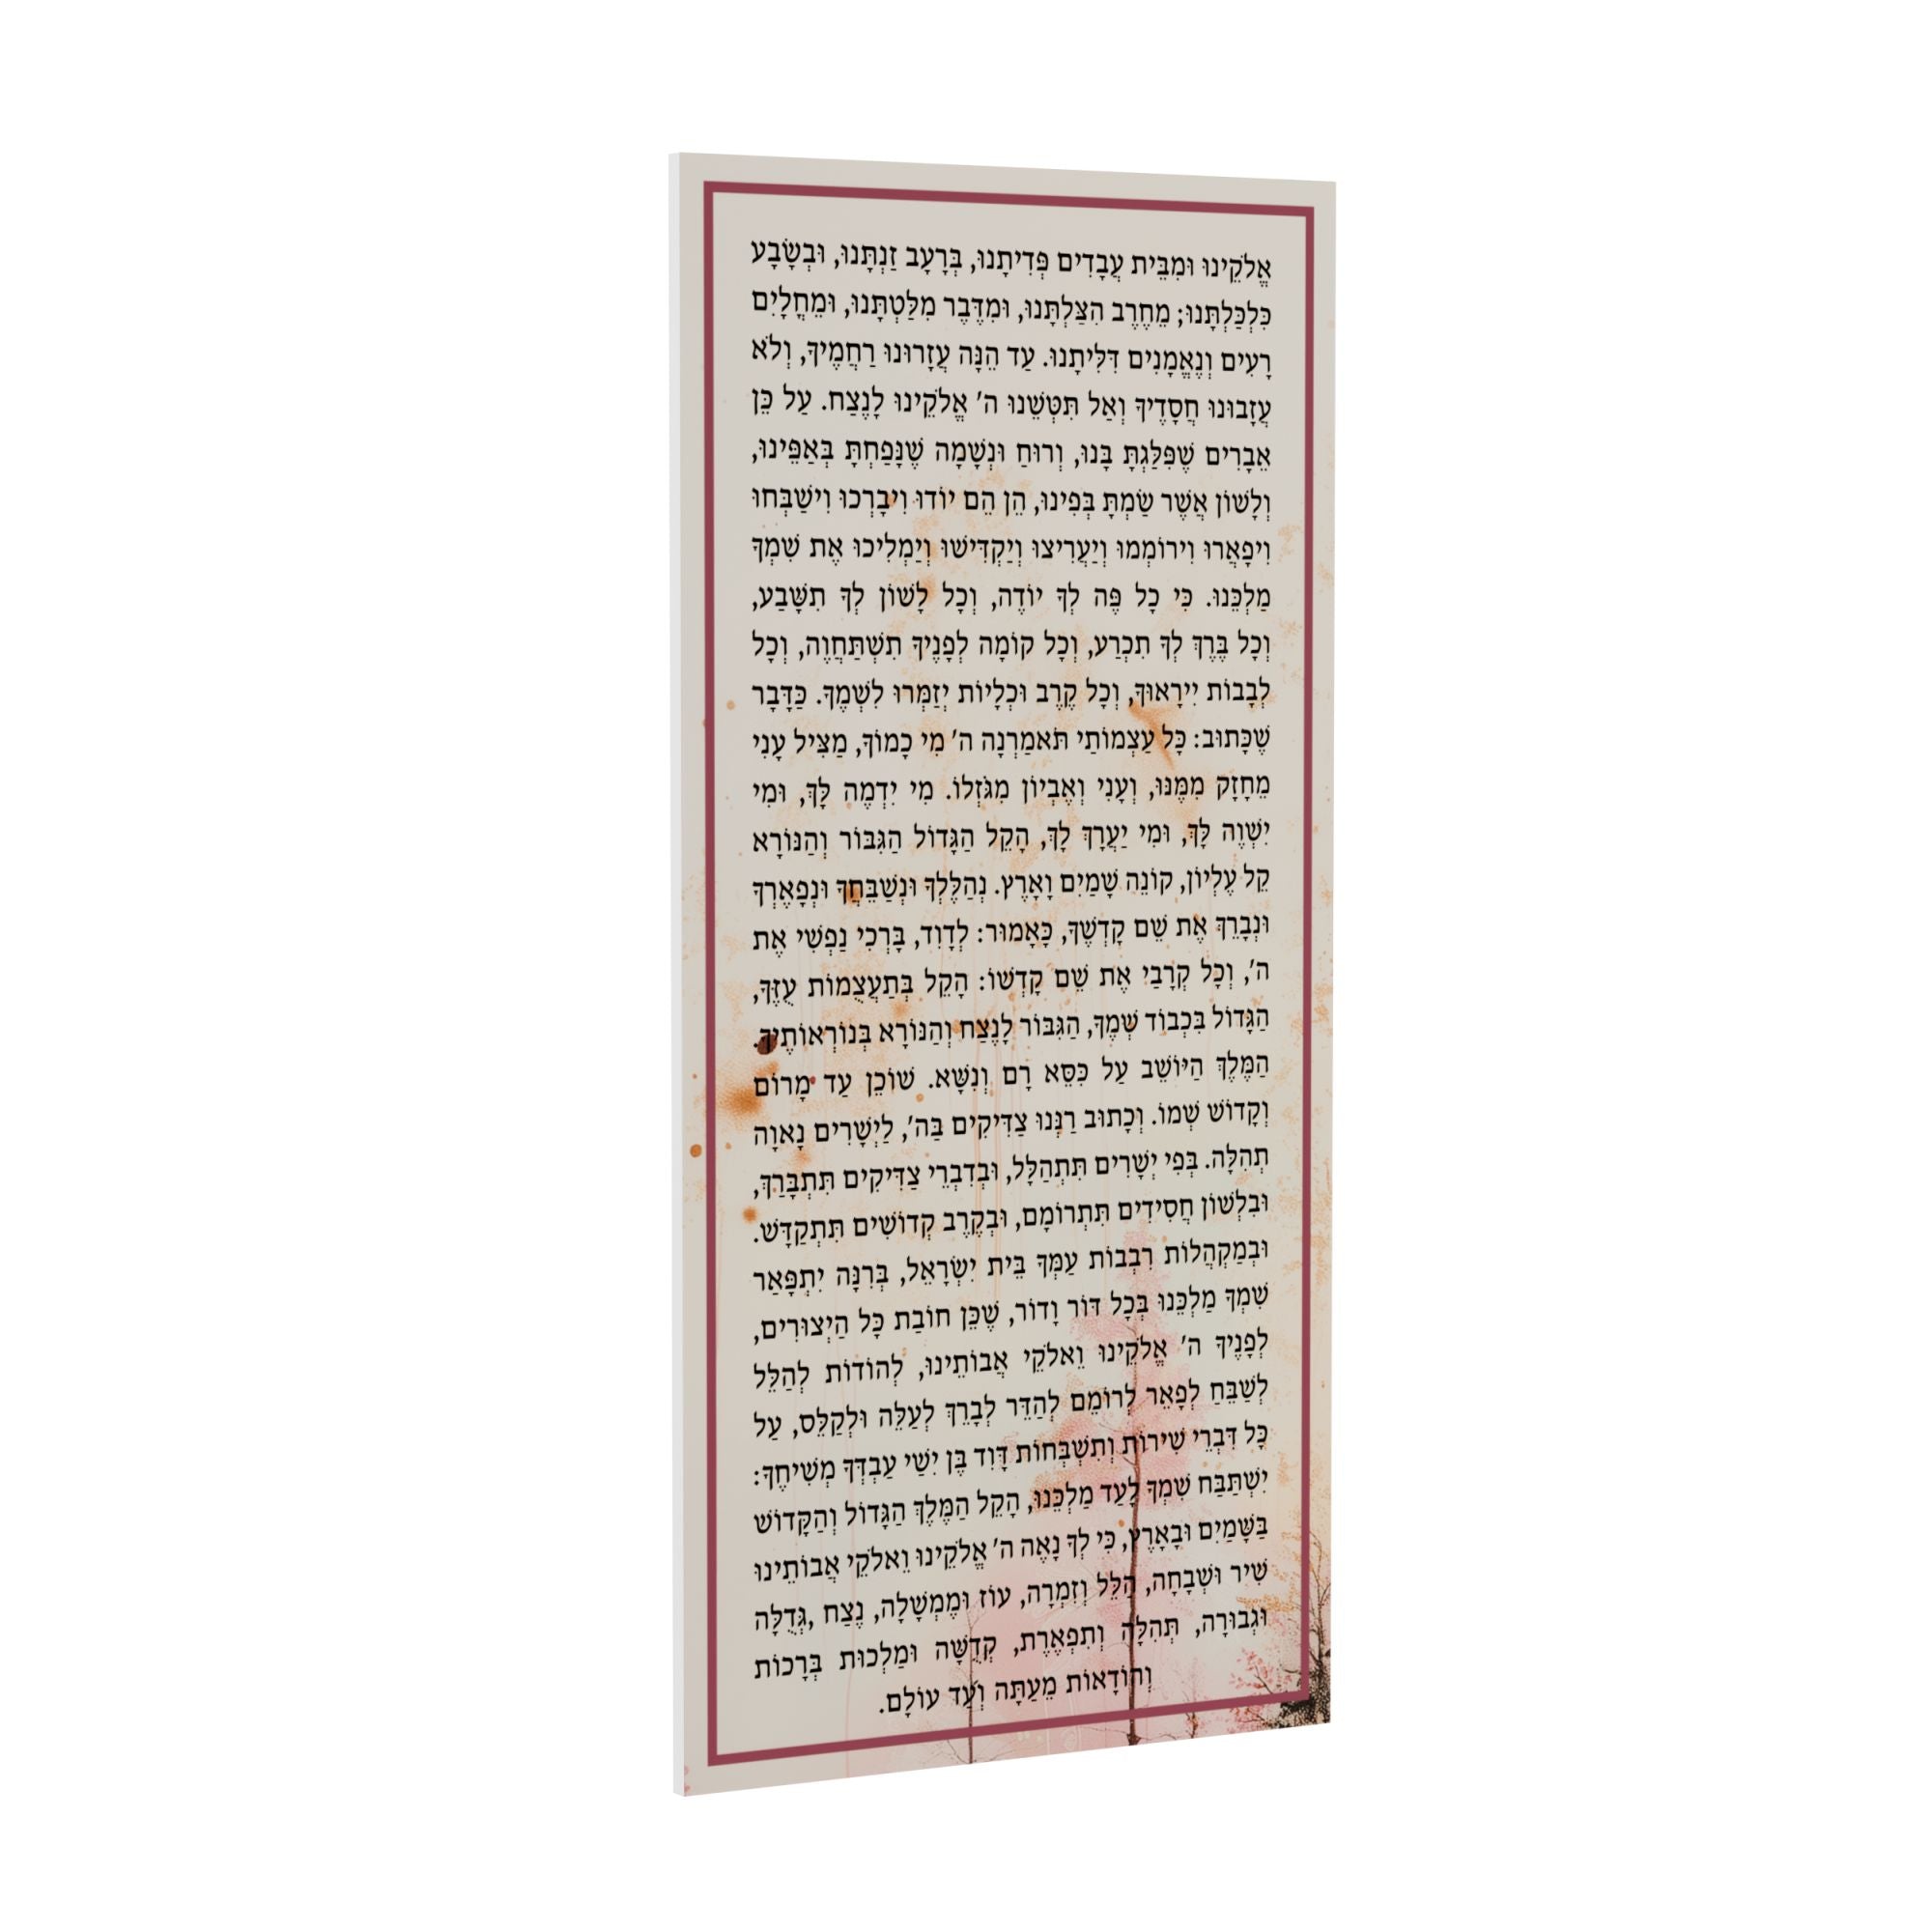 אֱלֹקֵינוּ וּמִבֵּית עֲבָדִים פְּדִיתָנוּ, בְּרָעָב זַנְתָּנוּ, וּבְשָׂבָע
כִּלְכַּלְתָּנוּ; מֵחֶרֶב הִצַּלְתָּנוּ, וּמִדֶּבֶר מִלַּטְתָּנוּ, וּמֵחֳלָיִם
רָעִים וְנֶאֱמָנִים דִּלִּיתָנוּ. עַד הֵנָּה עֲזָרוּנוּ רַחֲמֶיךָ, וְלֹא
עֲזָבוּנוּ חֲסָדֶיךָ וְאַל תִּטְּשֵׁנוּ ה' אֱלֹקֵינוּ לָנֶצַח. עַל כֵּן
אֵבָרִים שֶׁפִּלַּגְתָּ בָּנוּ, וְרוּחַ וּנְשָׁמָה שֶׁנָּפַחְתָּ בְּאַפֵּינוּ,
וְלָשׁוֹן אֲשֶׁר שַׂמְתָּ בְּפִינוּ, הֵן הֵם יוֹדוּ וִיבָרְכוּ וִישַׁבְּחוּ
וִיפָאֲרוּ וִירוֹמְמוּ וְיַעֲרִיצוּ וְיַקְדִּישׁוּ וְיַמְלִיכוּ אֶת שִׁמְךָ
מַלְכֵּנוּ. כִּי כָל פֶּה לְךָ יוֹדֶה, וְכָל לָשׁוֹן לְךָ תִשָּׁבַע,
וְכָל בֶּרֶךְ לְךָ תִכְרַע, וְכָל קוֹמָה לְפָנֶיךָ תִשְׁתַּחֲוֶה, וְכָל
לְבָבוֹת יִירָאוּךָ, וְכָל קֶרֶב וּכְלָיוֹת יְזַמְּרוּ לִשְׁמֶךָ. כַּדָּבָר
שֶׁכָּתוּב: כָּל עַצְמוֹתַי תֹּאמַרְנָה ה' מִי כָמוֹךָ, מַצִּיל עָנִי
מֵחָזָק מִמֶּנּוּ, וְעָנִי וְאֶבְיוֹן מִגֹּזְלוֹ. מִי יִדְמֶה לָּךְ, וּמִי
יִשְׁוֶה לָּךְ, וּמִי יַעֲרָךְ לָךְ, הָקֵל הַגָּדוֹל הַגִּבּוֹר וְהַנּוֹרָא
קֵל עֶלְיוֹן, קוֹנֵה שָׁמַיִם וָאָרֶץ. נְהַלֶּלְךָ וּנְשַׁבֵּחֲךָ וּנְפָאֶרְךָ
וּנְבָרֵךְ אֶת שֵׁם קָדְשֶׁךָ, כָּאָמוּר: לְדָוִד, בָּרְכִי נַפְשִׁי אֶת
ה', וְכָל קְרָבַי אֶת שֵׁם קָדְשׁוֹ: הָקֵל בְּתַעֲצֻמוֹת עֻזֶּךָ,
הַגָּדוֹל בִּכְבוֹד שְׁמֶךָ, הַגִּבּוֹר לָנֶצַח וְהַנּוֹרָא בְּנוֹרְאוֹתֶיךָ.
הַמֶּלֶךְ הַיּוֹשֵׁב עַל כִּסֵּא רָם וְנִשָּׂא. שׁוֹכֵן עַד מָרוֹם
וְקָדוֹשׁ שְׁמוֹ. וְכָתוּב רַנְּנוּ צַדִּיקִים בַּה', לַיְשָׁרִים נָאוָה
תְהִלָּה. בְּפִי יְשָׁרִים תִּתְהַלָּל, וּבְדִבְרֵי צַדִּיקִים תִּתְבָּרַךְ,
וּבִלְשׁוֹן חֲסִידִים תִּתְרוֹמָם, וּבְקֶרֶב קְדוֹשִׁים תִּתְקַדָּשׁ.
וּבְמַקְהֲלוֹת רִבְבוֹת עַמְּךָ בֵּית יִשְׂרָאֵל, בְּרִנָּה יִתְפָּאַר
שִׁמְךָ מַלְכֵּנוּ בְּכָל דּוֹר וָדוֹר, שֶׁכֵּן חוֹבַת כָּל הַיְצוּרִים,
לְפָנֶיךָ ה' אֱלֹקֵינוּ וֵאלֹקֵי אֲבוֹתֵינוּ, לְהוֹדוֹת לְהַלֵּל
לְשַׁבֵּחַ לְפָאֵר לְרוֹמֵם לְהַדֵּר לְבָרֵךְ לְעַלֵּה וּלְקַלֵּס, עַל
כָּל דִּבְרֵי שִׁירוֹת וְתִשְׁבְּחוֹת דָּוִד בֶּן יִשַׁי עַבְדְּךָ מְשִׁיחֶךָ:
יִשְׁתַּבַּח שִׁמְךָ לָעַד מַלְכֵּנוּ, הָקֵל הַמֶּלֶךְ הַגָּדוֹל וְהַקָּדוֹשׁ
בַּשָּׁמַיִם וּבָאָרֶץ, כִּי לְךָ נָאֶה ה' אֱלֹקֵינוּ וֵאלֹקֵי אֲבוֹתֵינוּ
שִׁיר וּשְׁבָחָה, הַלֵּל וְזִמְרָה, עוֹז וּמֶמְשָׁלָה, נֶצַח ,גְּדֻלָּה
וּגְבוּרָה, תְּהִלָּה וְתִפְאֶרֶת, קְדֻשָּׁה וּמַלְכוּת בְּרָכוֹת
וְהוֹדָאוֹת מֵעַתָּה וְעַד עוֹלָם.